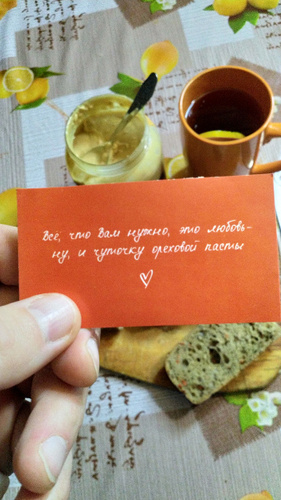 Всё, что Вам нужно, это любовь-
ну, и чуточку ореховой пасты